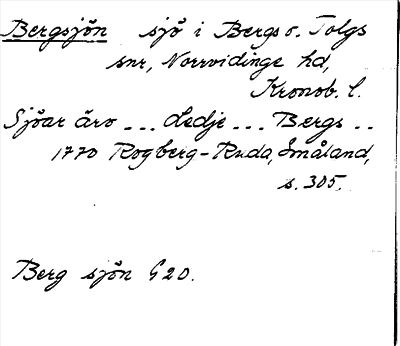 Bergsjön sjö i Bergs o. Tolgs
snr, Norrvidinge hd,
Kronob. l.
Sjöar äro ... dedje ... Bergs ..
1770 Rogberg-Ruda, Småland,
s. 305.
Berg sjön G 20.